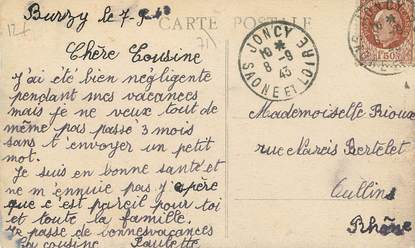 Burzy le 7-9-43
CARTE POSTALE
Chère Cousine
J'ai été bien négligente
pendant mes vacances
mais je ne veux tout de
même pas passé 3 mois
sans t'envoyer un petit
mot.
Je suis en bonne santé et
ne m'ennuie pas j'espère
que c'est pareil pour toi
et toute la famille.
Je passe de bonnes vacances
Ta cousine Paulette
JONCY
SAONE ET LOIRE
10 *
8 -9
43
1F50
Mademoiselle Rioux
rue Narcis Bertelet
Tullins
Rhône